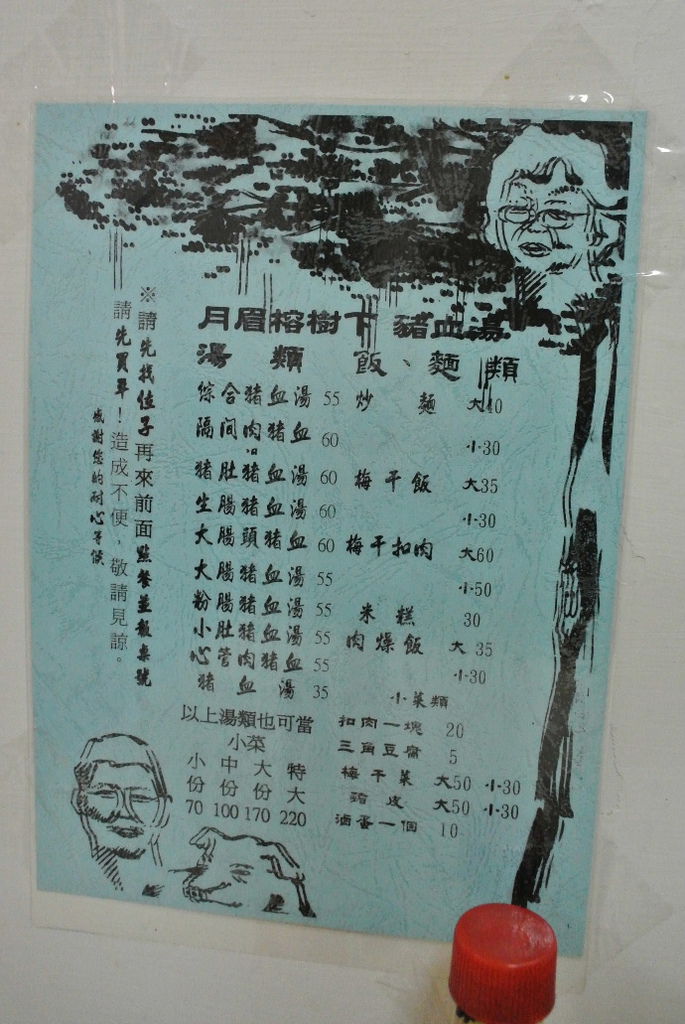 月眉榕樹下 豬血湯
湯 類
綜合豬血湯 55
隔間肉豬血湯 60
豬肚豬血湯 60
生腸豬血湯 60
大腸頭豬血 60
大腸豬血湯 55
粉腸豬血湯 55
小肚豬血湯 55
心管肉豬血 55
豬血湯 35
以上湯類也可當
小菜
小份 70
中份 100
大份 170
特大 220
飯、麵 類
炒 麵 大40
小30
梅干飯 大35
小30
梅干扣肉 大60
小50
米糕 30
肉燥飯 大 35
小30
小菜類
扣肉一塊 20
三角豆腐 5
梅干菜 大50 小30
豬皮 大50 小30
滷蛋一個 10
※請先找位子再來前面點餐並報桌號
請先買單！造成不便，敬請見諒。
感謝您的耐心等候